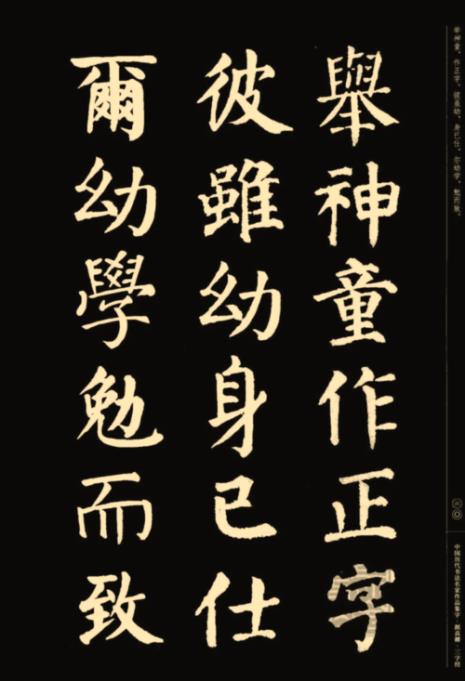 舉神童作正字
彼雖幼身已仕
爾幼學勉而致
举神童，作正字。彼虽幼，身已仕。尔幼学，勉而致。
中国历代书法名家作品集字·赵孟頫·三字经